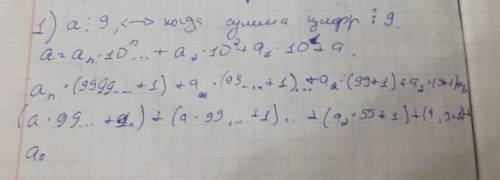 1) a ⋮ 9, <-> когда сумма цифр ⋮ 9.
a = aₙ · 10ⁿ... + a₂ · 10² + a₁ · 10¹ + a.
aₙ · (9999... + 1) + a · (99... + 1)... + a₂ · (99 + 1) + a₁ · (9+1)
(a · 99... + a) + (a · 99... + 1)... + (a₂ · 99 + 1) + (a, 9+1) +
a₀